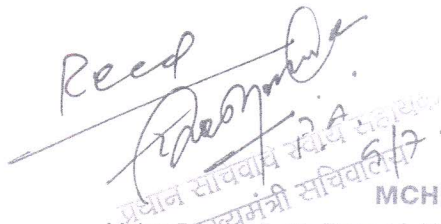 Recd
P.A.
5/7
प्रधान सचिवांचे स्वीय सहायक
मुख्यमंत्री सचिवालय
MCH